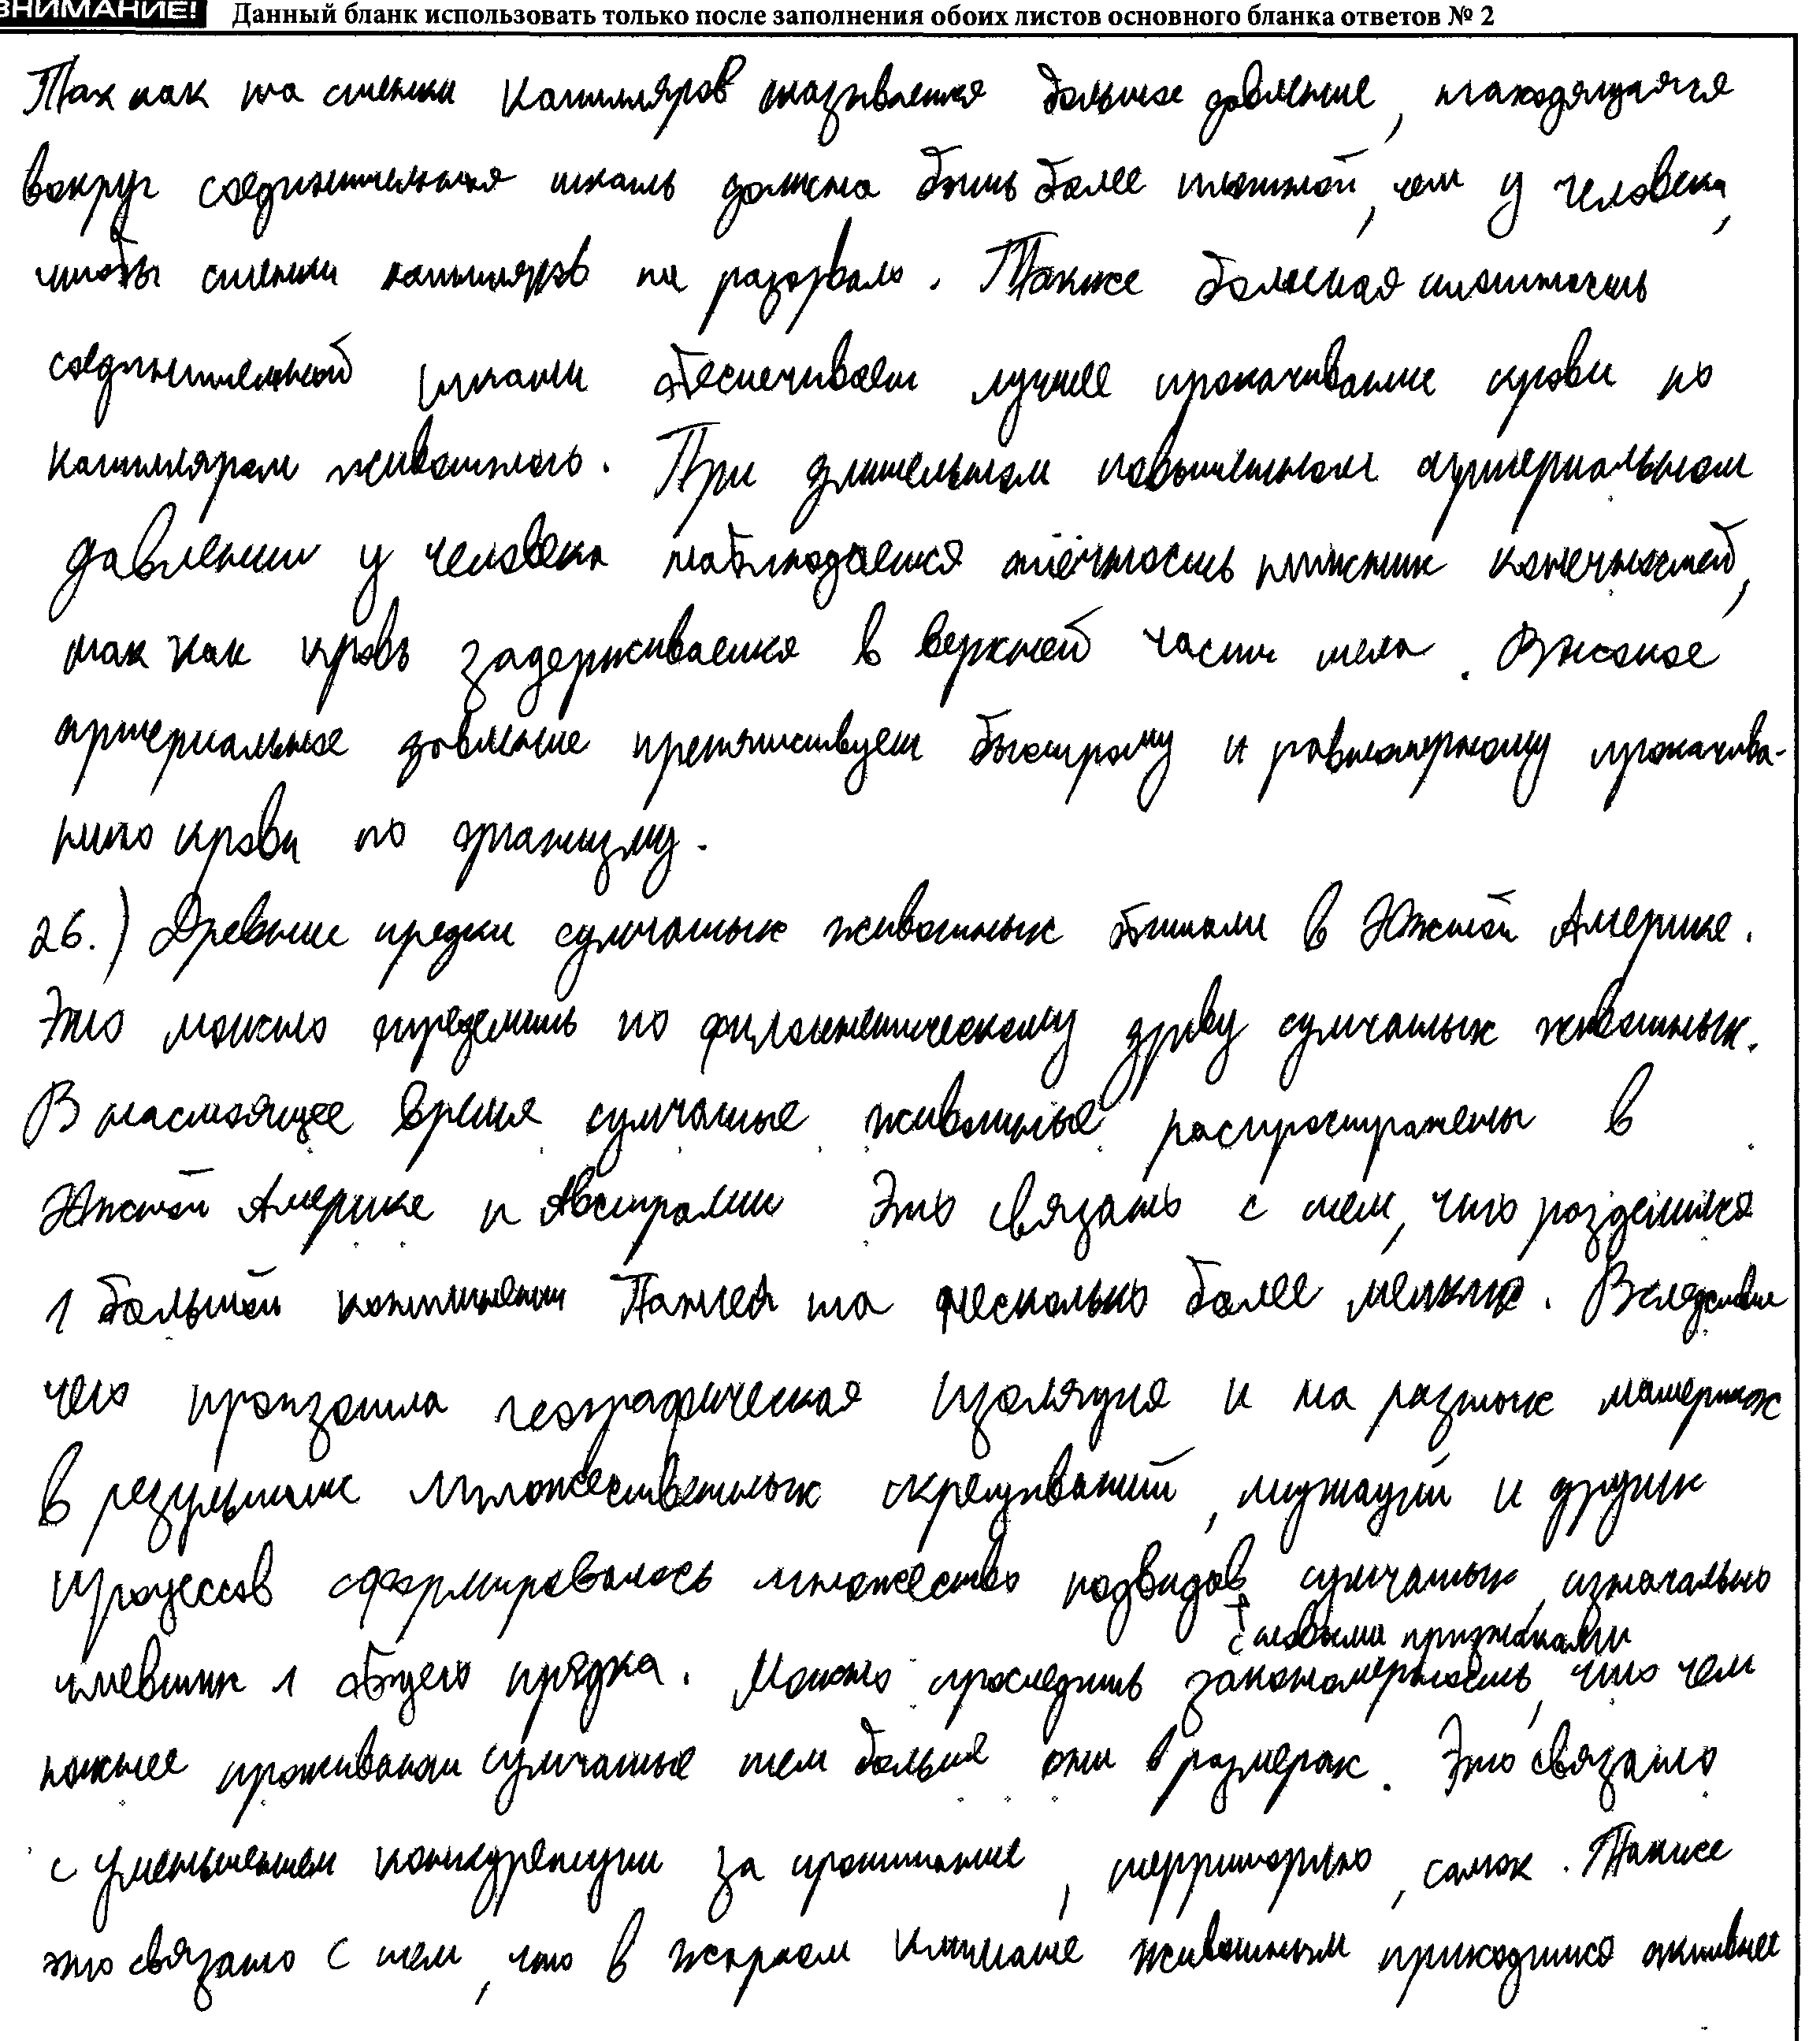 ВНИМАНИЕ! Данный бланк использовать только после заполнения обоих листов основного бланка ответов № 2
Так как на стенки капилляров оказывается большее давление, находящаяся
вокруг соединительная ткань должна быть более плотной, чем у человека,
чтобы стенки капилляров не разорвало. Также большая плотность
соединительной ткани обеспечивает лучшее прокачивание крови по
капиллярам животного. При длительном повышенном артериальном
давлении у человека наблюдается отёчность нижних конечностей,
так как кровь задерживается в верхней части тела. Высокое
артериальное давление препятствует быстрому и равномерному прокачива-
нию крови по организму.
26.) Древние предки сумчатых животных обитали в Южной Америке.
Это можно определить по филогенетическому древу сумчатых животных.
В настоящее время сумчатые животные распространены в
Южной Америке и Австралии Это связано с тем, что разделился
1 большой континент Пангея на несколько более мелких. Вследствие
чего произошла географическая изоляция и на разных материках
в результате множественных скрещиваний, мутаций и других
процессов сформировалось множество подвидов сумчатых, изначально
с новыми признаками
имевших 1 общего предка. Можно проследить закономерность, что чем
южнее проживают сумчатые тем больше они в размерах. Это связано
с уменьшением конкуренции за пропитание, территорию, самок. Также
это связано с тем, что в жарком климате животным приходится активнее